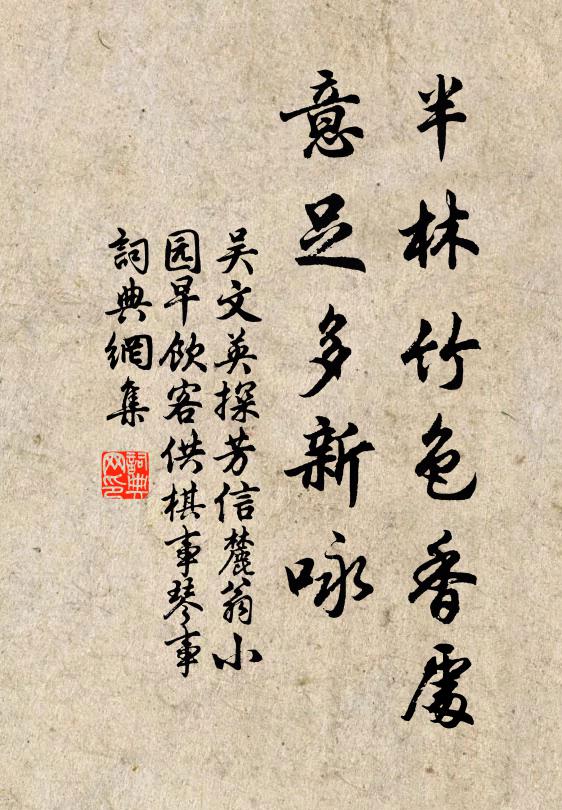 半林竹色香處
意足多新咏
吴文英探芳信麓翁小
园早飲客供棋事琴事
詞典網集
詞典
网印